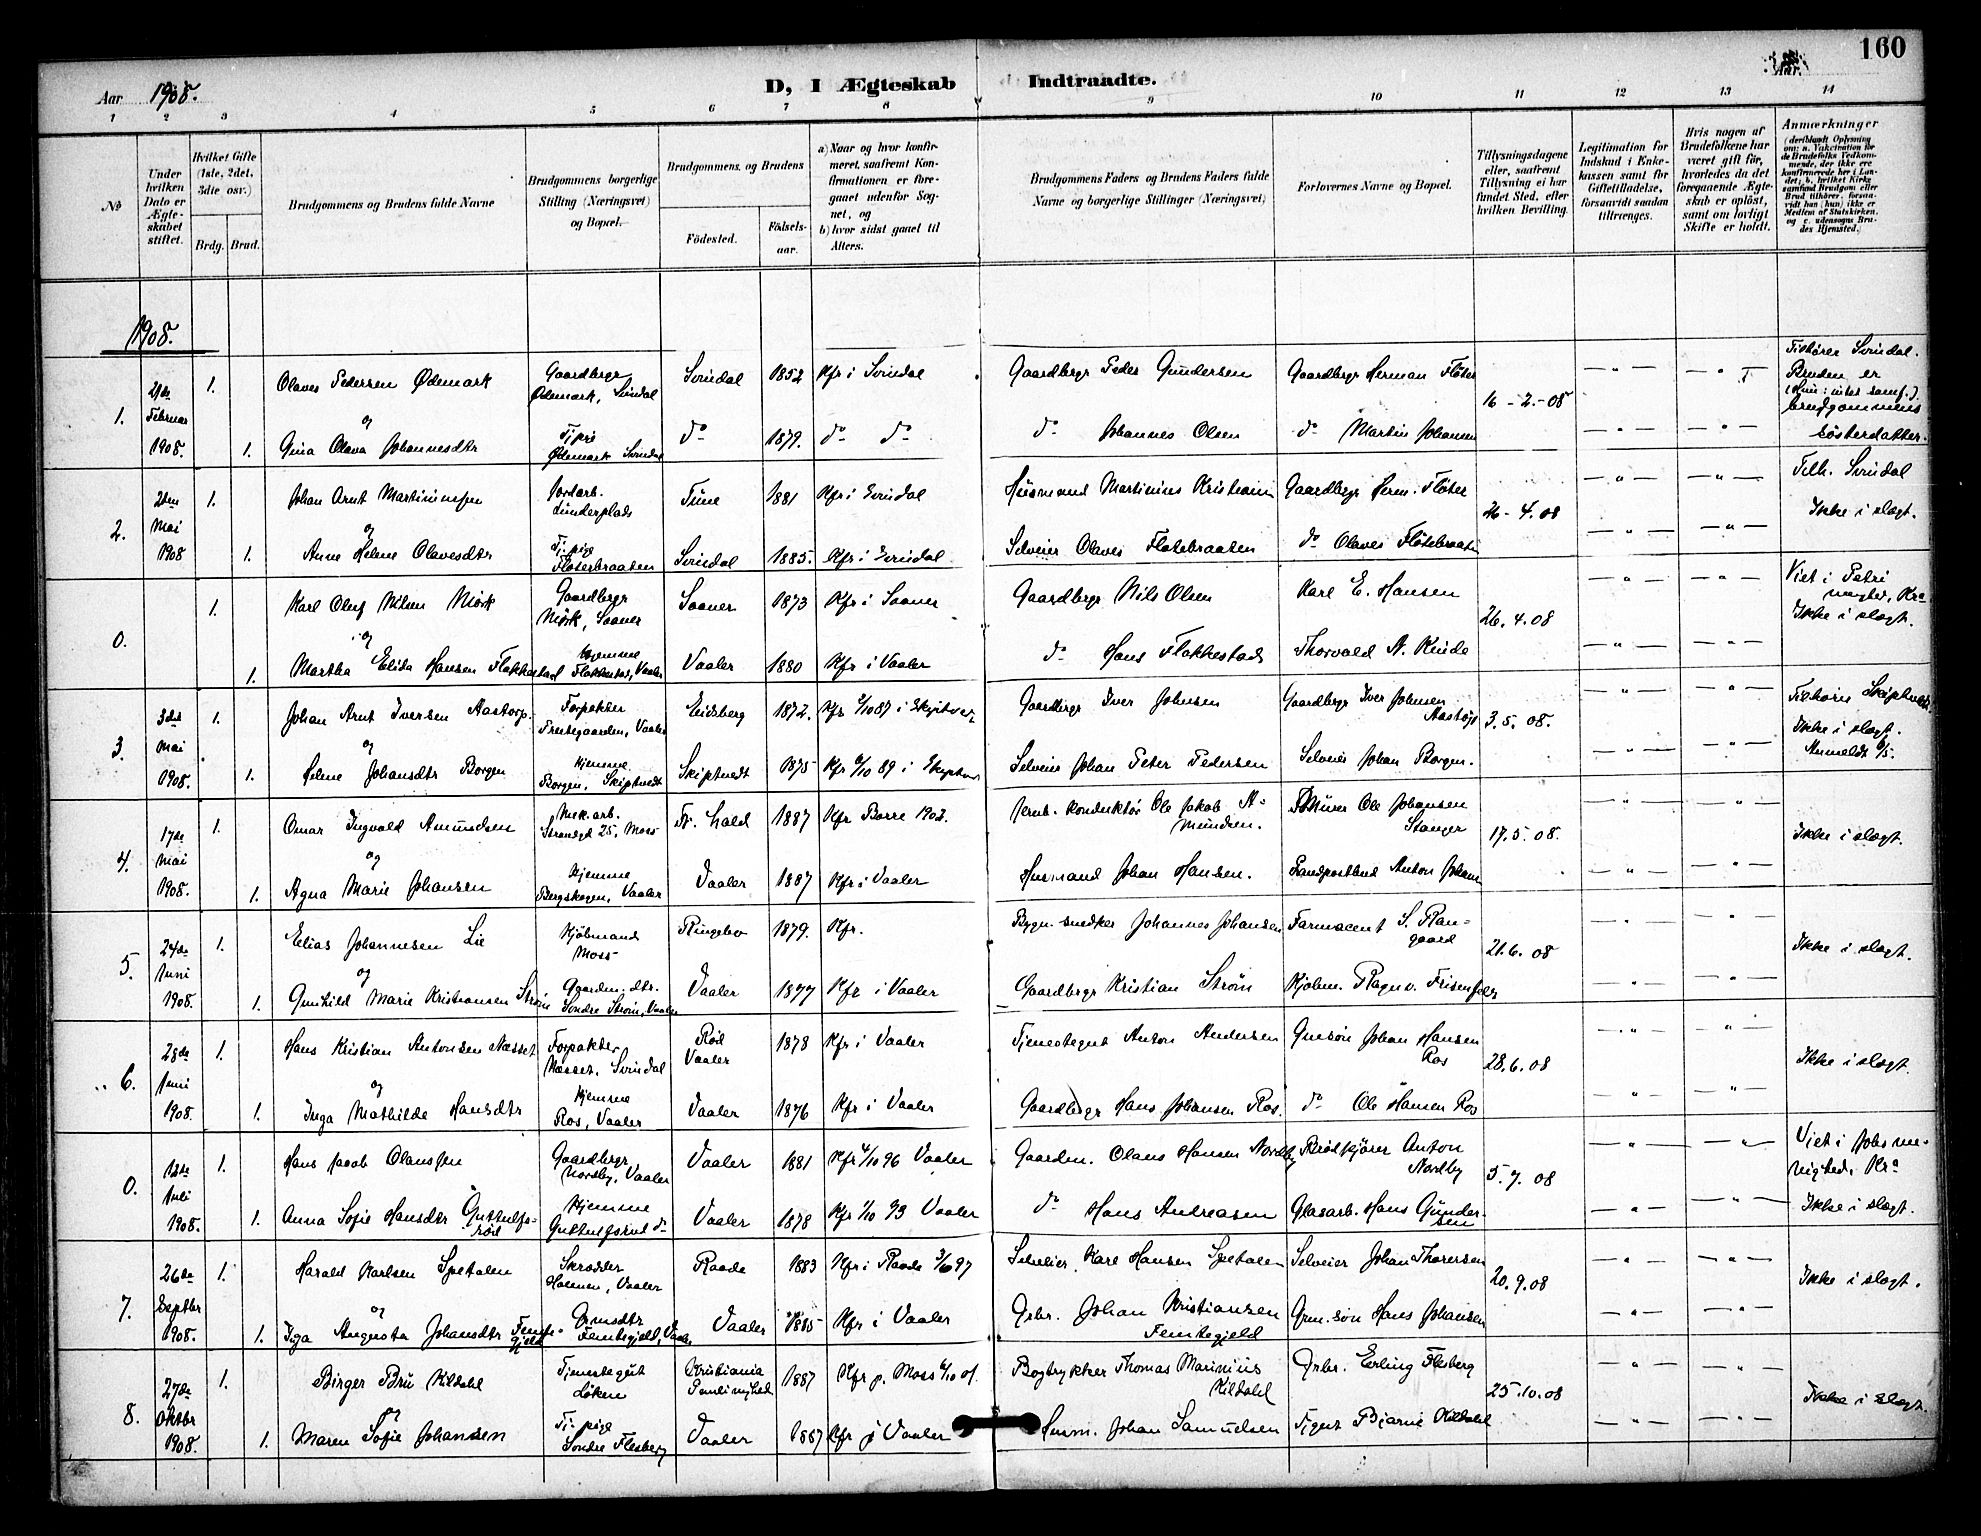 160
D, I Ægteskab Indtraadte.
Aar 1908.
Aar.
1 2 3 4 5 6 7 8 9 10 11 12 13 14
No
Under hvilken Dato er Ægteskabet stiftet.
Hvilket Gifte (1ste, 2det, 3die osv.)
Brdg. Brud.
Brudgommens og Brudens fulde Navne
Brudgommens borgerlige Stilling (Næringsvei) og Bopæl.
Brudgommens og Brudens
Fødested.
Fødselsaar.
a) Naar og hvor konfirmeret, saafremt Konfirmationen er foregaaet udenfor Sognet, og
b) hvor sidst gaaet til Alters.
Brudgommens Faders og Brudens Faders fulde Navne og borgerlige Stillinger (Næringsvei)
Forlovernes Navne og Bopæl.
Tillysningsdagene eller, saafremt Tillysning ei har fundet Sted, efter hvilken Bevilling.
Legitimation for Indskud i Enkekassen samt for Giftetilladelse, forsaavidt saadan tiltrænges.
Hvis nogen af Brudefolkene har været gift før, hvorledes da det foregaaende Ægteskab er opløst, samt om lovligt Skifte er holdt.
Anmærkninger (deriblandt Oplysning om: a. Vakcination for de Brudefolks Vedkommende, der ikke ere konfirmerede her i Landet; b. hvilket Kirkesamfund Brudgom eller Brud tilhører, forsaavidt han (hun) ikke er Medlem af Statskirken, og c. udensogns Brudes Hjemsted.)
1908.
1. Februar 1908. 1. Olaves Pedersen Ødemark Gaardbrgr Ødemark, Svindal Svindal 1852 Kfr i Svindal Gaardbrgr Peder Gundersen Gaardbrgr Herman Fløter 16-2.-08 Tilhører Svindal. Bruden er brudgommens søsterdatter.
og
1. Gina Olava Johannesdtr Ødemark Svindal do 1879. do do do Johannes Olsen do Martin Johansen
2. 2den Mai 1908 1. Johan Arnt Martinius Jordarb. Tune 1881 Kfr i Svindal Husmand Martinius Kristian Gaardbrgr Herm. Fløter 26-4.08 Tilh. Svindal Ikke i slægt.
og
1. Anne Helene Olavesdtr Tj. pige Fløterbraaten Svindal 1885. Kfr i Svindal Selveier Olaves Fløtebraaten do Olaves Fløtebraaten
0. 1. Karl Oluf Nilsen Mørk Gaardbrgr Mørk, Saaner Saaner 1873 Kfr i Saaner Gaardbrgr Nils Olsen Karl E. Hansen 26.4.08 Viet i Petri menighed, Kra Ikke i slægt.
og
1. Martha Elida Hansen Flakkestad hjemme Flakkestad, Vaaler Vaaler 1880 Kfr i Vaaler do Hans Flakkestad Thorvald A. Kinde
3. 3die Mai 1908. 1. Johan Arnt Iversen Aastorp. Forpakter Prestegaarden, Vaaler Eidsberg 1872. Kfr 2/10 87 i Skiptvet Gaardbrgr Iver Johnsen Gaardbrgr Iver Johnsen Aastorp 3.5.08. Tilhører Skiptvedt. Ikke i slægt. Anmeldt 6/5.
og
1. Helene Johansdtr Borgen hjemme Borgen, Skiptvedt Skiptvedt 1875 Kfr 6/10 89 i Skiptvet Selveier Johan Peter Pedersen Selveier Johan Borgen.
4. 17de Mai 1908. 1. Omar Ingvald Amundsen Mek.arb. Strandgd 25, Moss Fr. hald 1887 Kfr Borre 1902. Jernb. konduktør Ole Jakob Amundsen. Ole Johansen Stanger 17.5.08. Ikke i slægt.
og
1. Agna Marie Johansen hjemme Bergskogen, Vaaler Vaaler 1887 Kfr i Vaaler Husmand Johan Hansen. Landpostbud Anton Johansen
5. 24de Juni 1908. 1. Elias Johannesen Lie Kjøbmand Moss Ringebo 1879. Kfr. Bygn. snedker Johannes Johansen Farmaceut S. Rangaard 21.6.08 Ikke i slægt.
og
1. Gunhild Marie Kristiansen Strøm Gaardm. dtr. Søndre Strøm, Vaaler Vaaler 1877 Kfr i Vaaler Gaardbrgr Kristian Strøm Kjøbm. Ragnv. Frisenfeldt
6. 28de Juni 1908. 1. Hans Kristian Antonsen Næsset Forpakter Næsset, Svindal Rød Vaaler 1878 Kfr i Vaaler Tjenestegut Anton Andersen Gmsøn Johan Hansen Ros 28.6.08 Ikke i slægt.
og
1. Inga Mathilde Hansdtr hjemme Ros, Vaaler Vaaler 1876 Kfr i Vaaler Gaardbrgr Hans Johansen Ros. do Ole Hansen Ros
0. 12te Juli 1908. 1. Hans Jacob Olaussen Gaardbrgr Nordby, Vaaler Vaaler 1881 Kfr 4/10 96 Vaaler Gaardm. Olaus Hansen Nordby Brødkjører Anton Nordby 5.7.08 Viet i Johs menighed, Kra Ikke i slægt.
1. Anna Sofie Hansdtr Guttulfsrød hjemme Guttulfsrud do Vaaler 1878 Kfr 1/10 93 Vaaler do Hans Andreasen Glasarb. Hans Gundersen
7. 26de Septbr 1908. 1. Harald Karlsen Spetalen Skrædder Holmen, Vaaler Raade 1883 Kfr i Raade 3/10 97 Selveier Karl Hansen Spetalen Selveier Johan Thoresen 20.9.08 Ikke i slægt.
og
1. Inga Augusta Johansdtr Femtegjeld Gmsdtr Femtegjeld, Vaaler Vaaler 1885 Kfr i Vaaler Grbr. Johan Kristiansen Femtegjeld Grm.søn Hans Johansen
8. 27de Oktbr 1908. 1. Birger Bru Kildahl Tjenestegut Løken Kristiania Paulimghed 1887 Kfr p. Moss 6/10 01. Bogtrykker Thomas Marinius Kildahl Grbr. Erling Flesberg 25.10.08 Ikke i slægt.
og
1. Maren Sofie Johansen Tj. pige Søndre Flesberg Vaaler 1887 Kfr i Vaaler Husm. Johan Samuelsen Tjgut Bjarne Kildahl